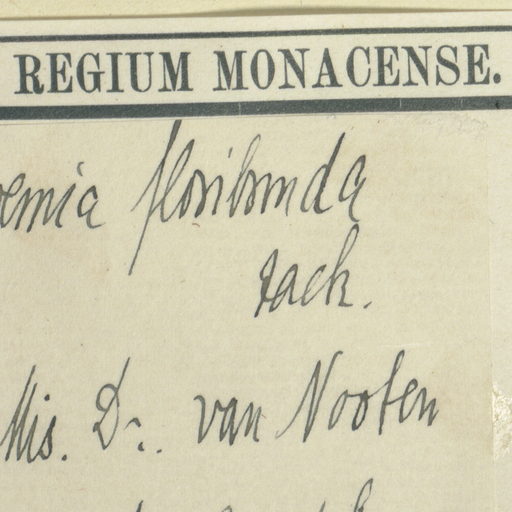 REGIUM MONACENSE.
floribunda
Mis. Dr. van Nooten